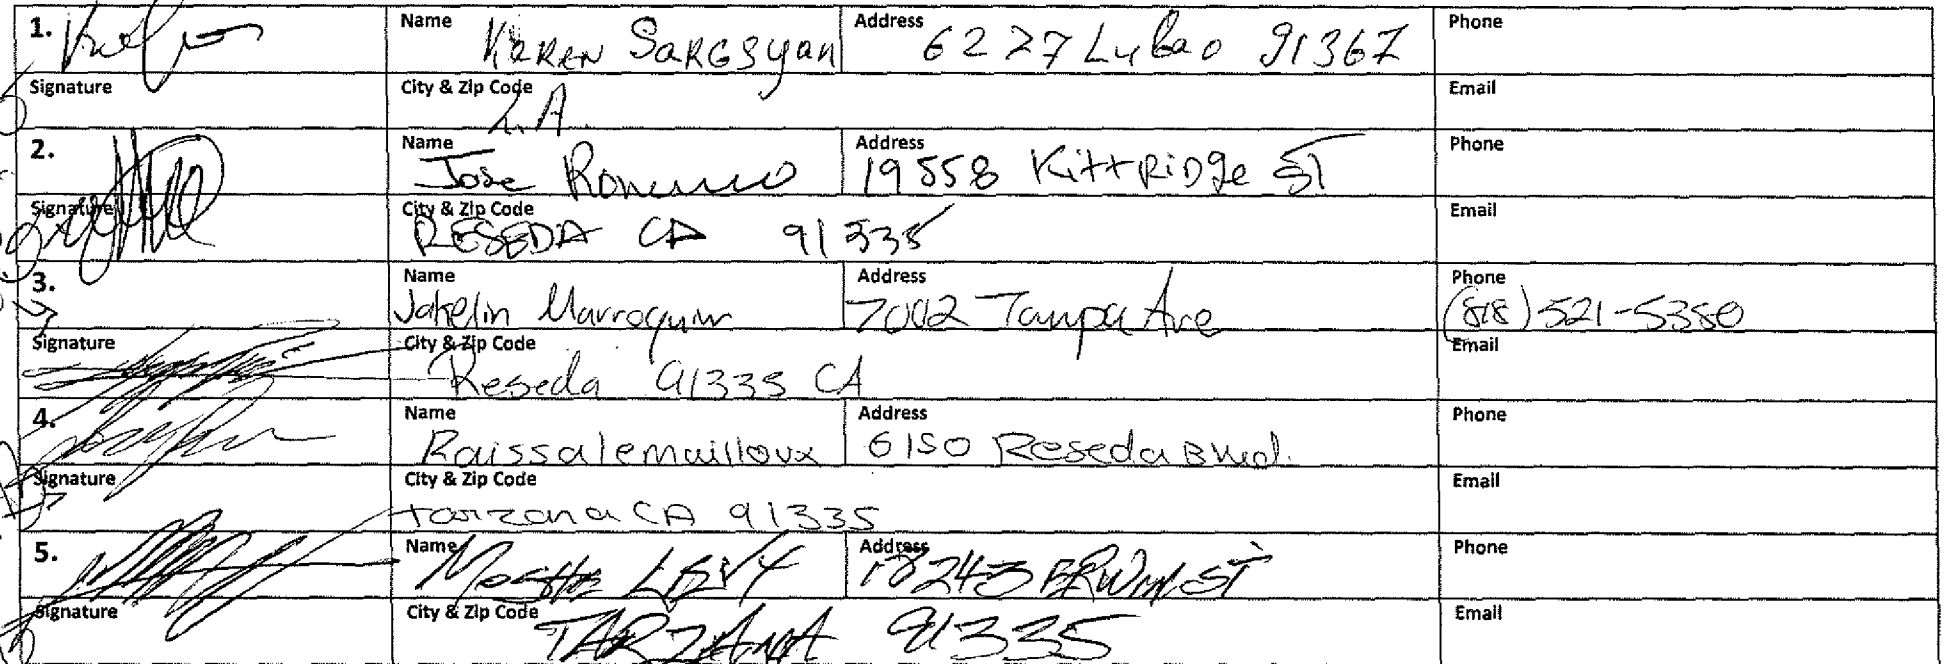 1. Name KAREN SARGSyan Address 6227 Lubao 91367 Phone
Signature City & Zip Code L.A. Email
2. Name Jose Romero Address 19558 KittRiDge ST Phone
Signature City & Zip Code RESEDA CA 91335 Email
3. Name Jakelin Marroquin Address 7002 Tampa Ave Phone (818) 521-5380
Signature City & Zip Code Reseda 91335 CA Email
4. Name Raissalemailloux Address 6150 Reseda Blvd. Phone
Signature City & Zip Code tarzana CA 91335 Email
5. Name MOSHE LEVY Address 18243 ERWIN ST Phone
Signature City & Zip Code TARZANA 91335 Email